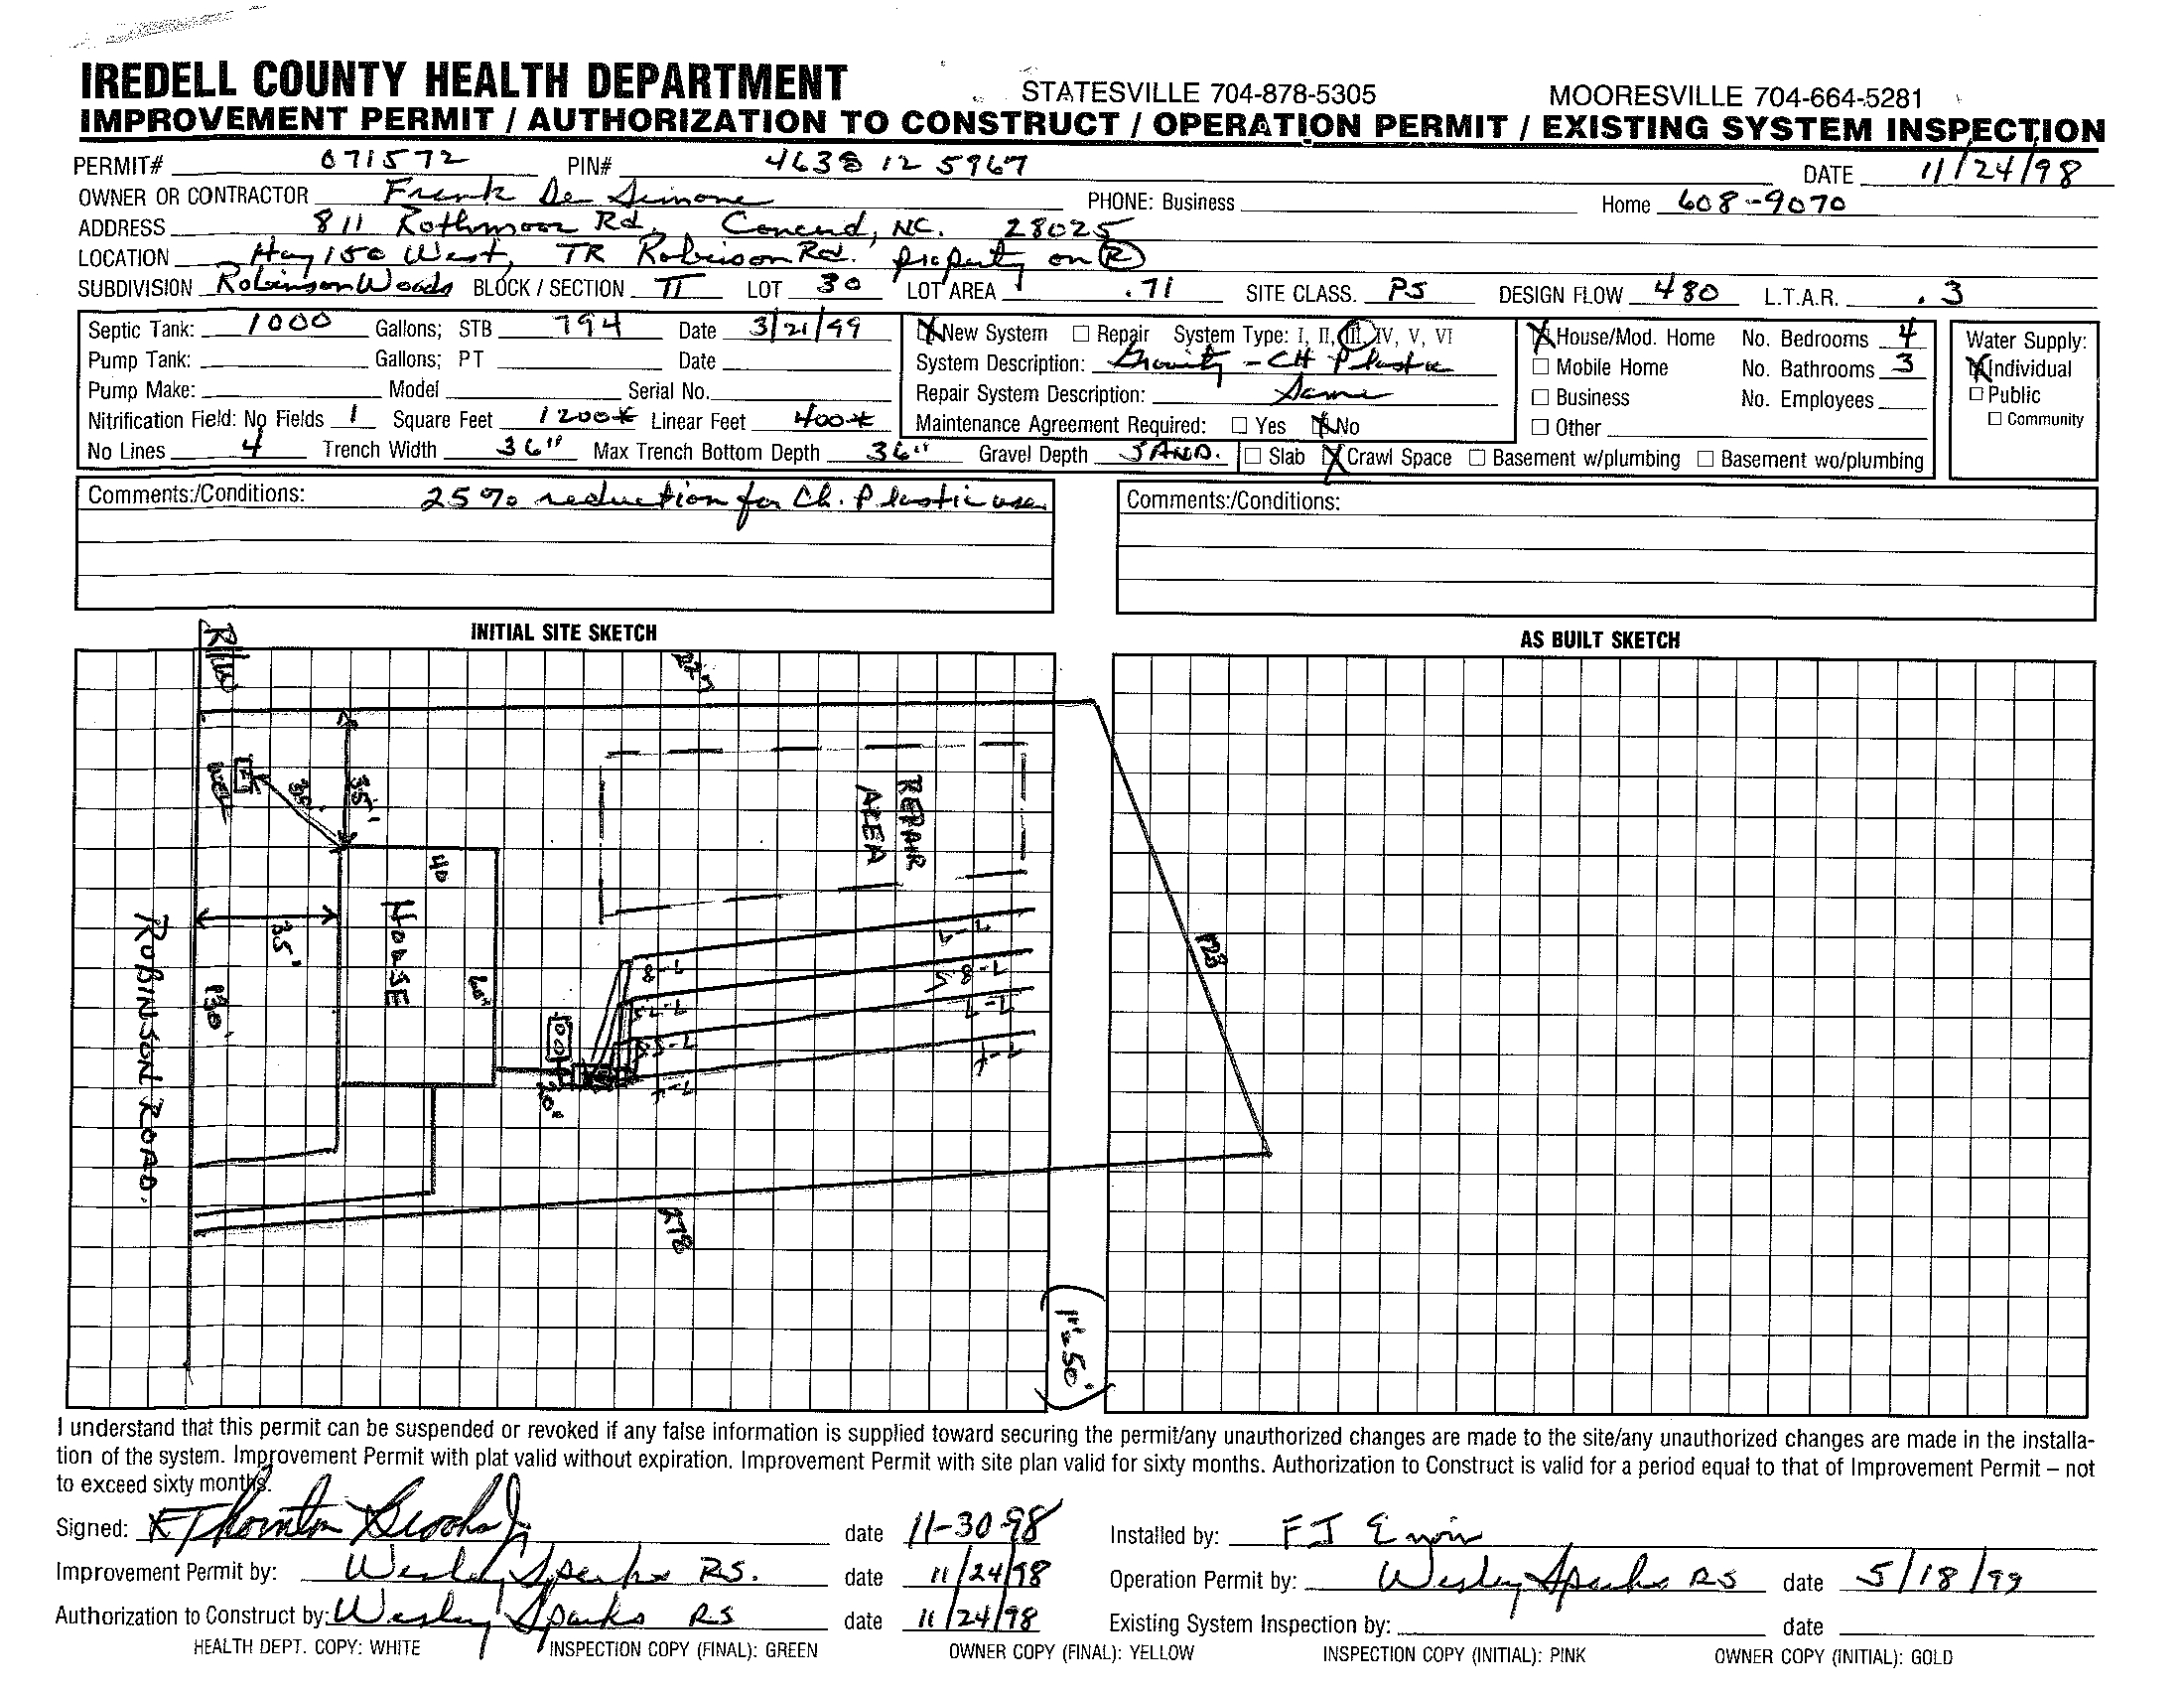 IREDELL COUNTY HEALTH DEPARTMENT STATESVILLE 704-878-5305 MOORESVILLE 704-664-5281
IMPROVEMENT PERMIT / AUTHORIZATION TO CONSTRUCT / OPERATION PERMIT / EXISTING SYSTEM INSPECTION
PERMIT# 071572 PIN# 4638 12 5967 DATE 11/24/98
OWNER OR CONTRACTOR Frank De Simone PHONE: Business Home 608-9070
ADDRESS 811 Rothmoor Rd. Concord, NC. 28025
LOCATION Hwy 150 West, TR Robinson Rd. property on R
SUBDIVISION Robinson Woods BLOCK / SECTION II LOT 30 LOT AREA .71 SITE CLASS. PS DESIGN FLOW 480 L.T.A.R. .3
Septic Tank: 1000 Gallons; STB 794 Date 3/21/99 X New System Repair System Type: I, II, III, IV, V, VI X House/Mod. Home No. Bedrooms 4 Water Supply:
Pump Tank: Gallons; PT Date System Description: Gravity - CH Plastic Mobile Home No. Bathrooms 3 X Individual
Pump Make: Model Serial No. Repair System Description: Same Business No. Employees Public
Nitrification Field: No Fields 1 Square Feet 1200* Linear Feet 400* Maintenance Agreement Required: Yes X No Other Community
No Lines 4 Trench Width 36" Max Trench Bottom Depth 36" Gravel Depth SAND. Slab X Crawl Space Basement w/plumbing Basement wo/plumbing
Comments:/Conditions: 25% reduction for Ch. Plastic use. Comments:/Conditions:
INITIAL SITE SKETCH AS BUILT SKETCH
R/W
WELL
35'
35'
REPAIR
AREA
40
HOUSE
60'
35'
130'
ROBINSON ROAD.
128
278
1"=50'
I understand that this permit can be suspended or revoked if any false information is supplied toward securing the permit/any unauthorized changes are made to the site/any unauthorized changes are made in the installa-
tion of the system. Improvement Permit with plat valid without expiration. Improvement Permit with site plan valid for sixty months. Authorization to Construct is valid for a period equal to that of Improvement Permit – not
to exceed sixty months.
Signed: X F Thornton Brooks Jr date 11-30-98 Installed by: FJ Ervin
Improvement Permit by: Wesley Sparks RS. date 11/24/98 Operation Permit by: Wesley Sparks RS date 5/18/99
Authorization to Construct by: Wesley Sparks RS date 11/24/98 Existing System Inspection by: date
HEALTH DEPT. COPY: WHITE INSPECTION COPY (FINAL): GREEN OWNER COPY (FINAL): YELLOW INSPECTION COPY (INITIAL): PINK OWNER COPY (INITIAL): GOLD